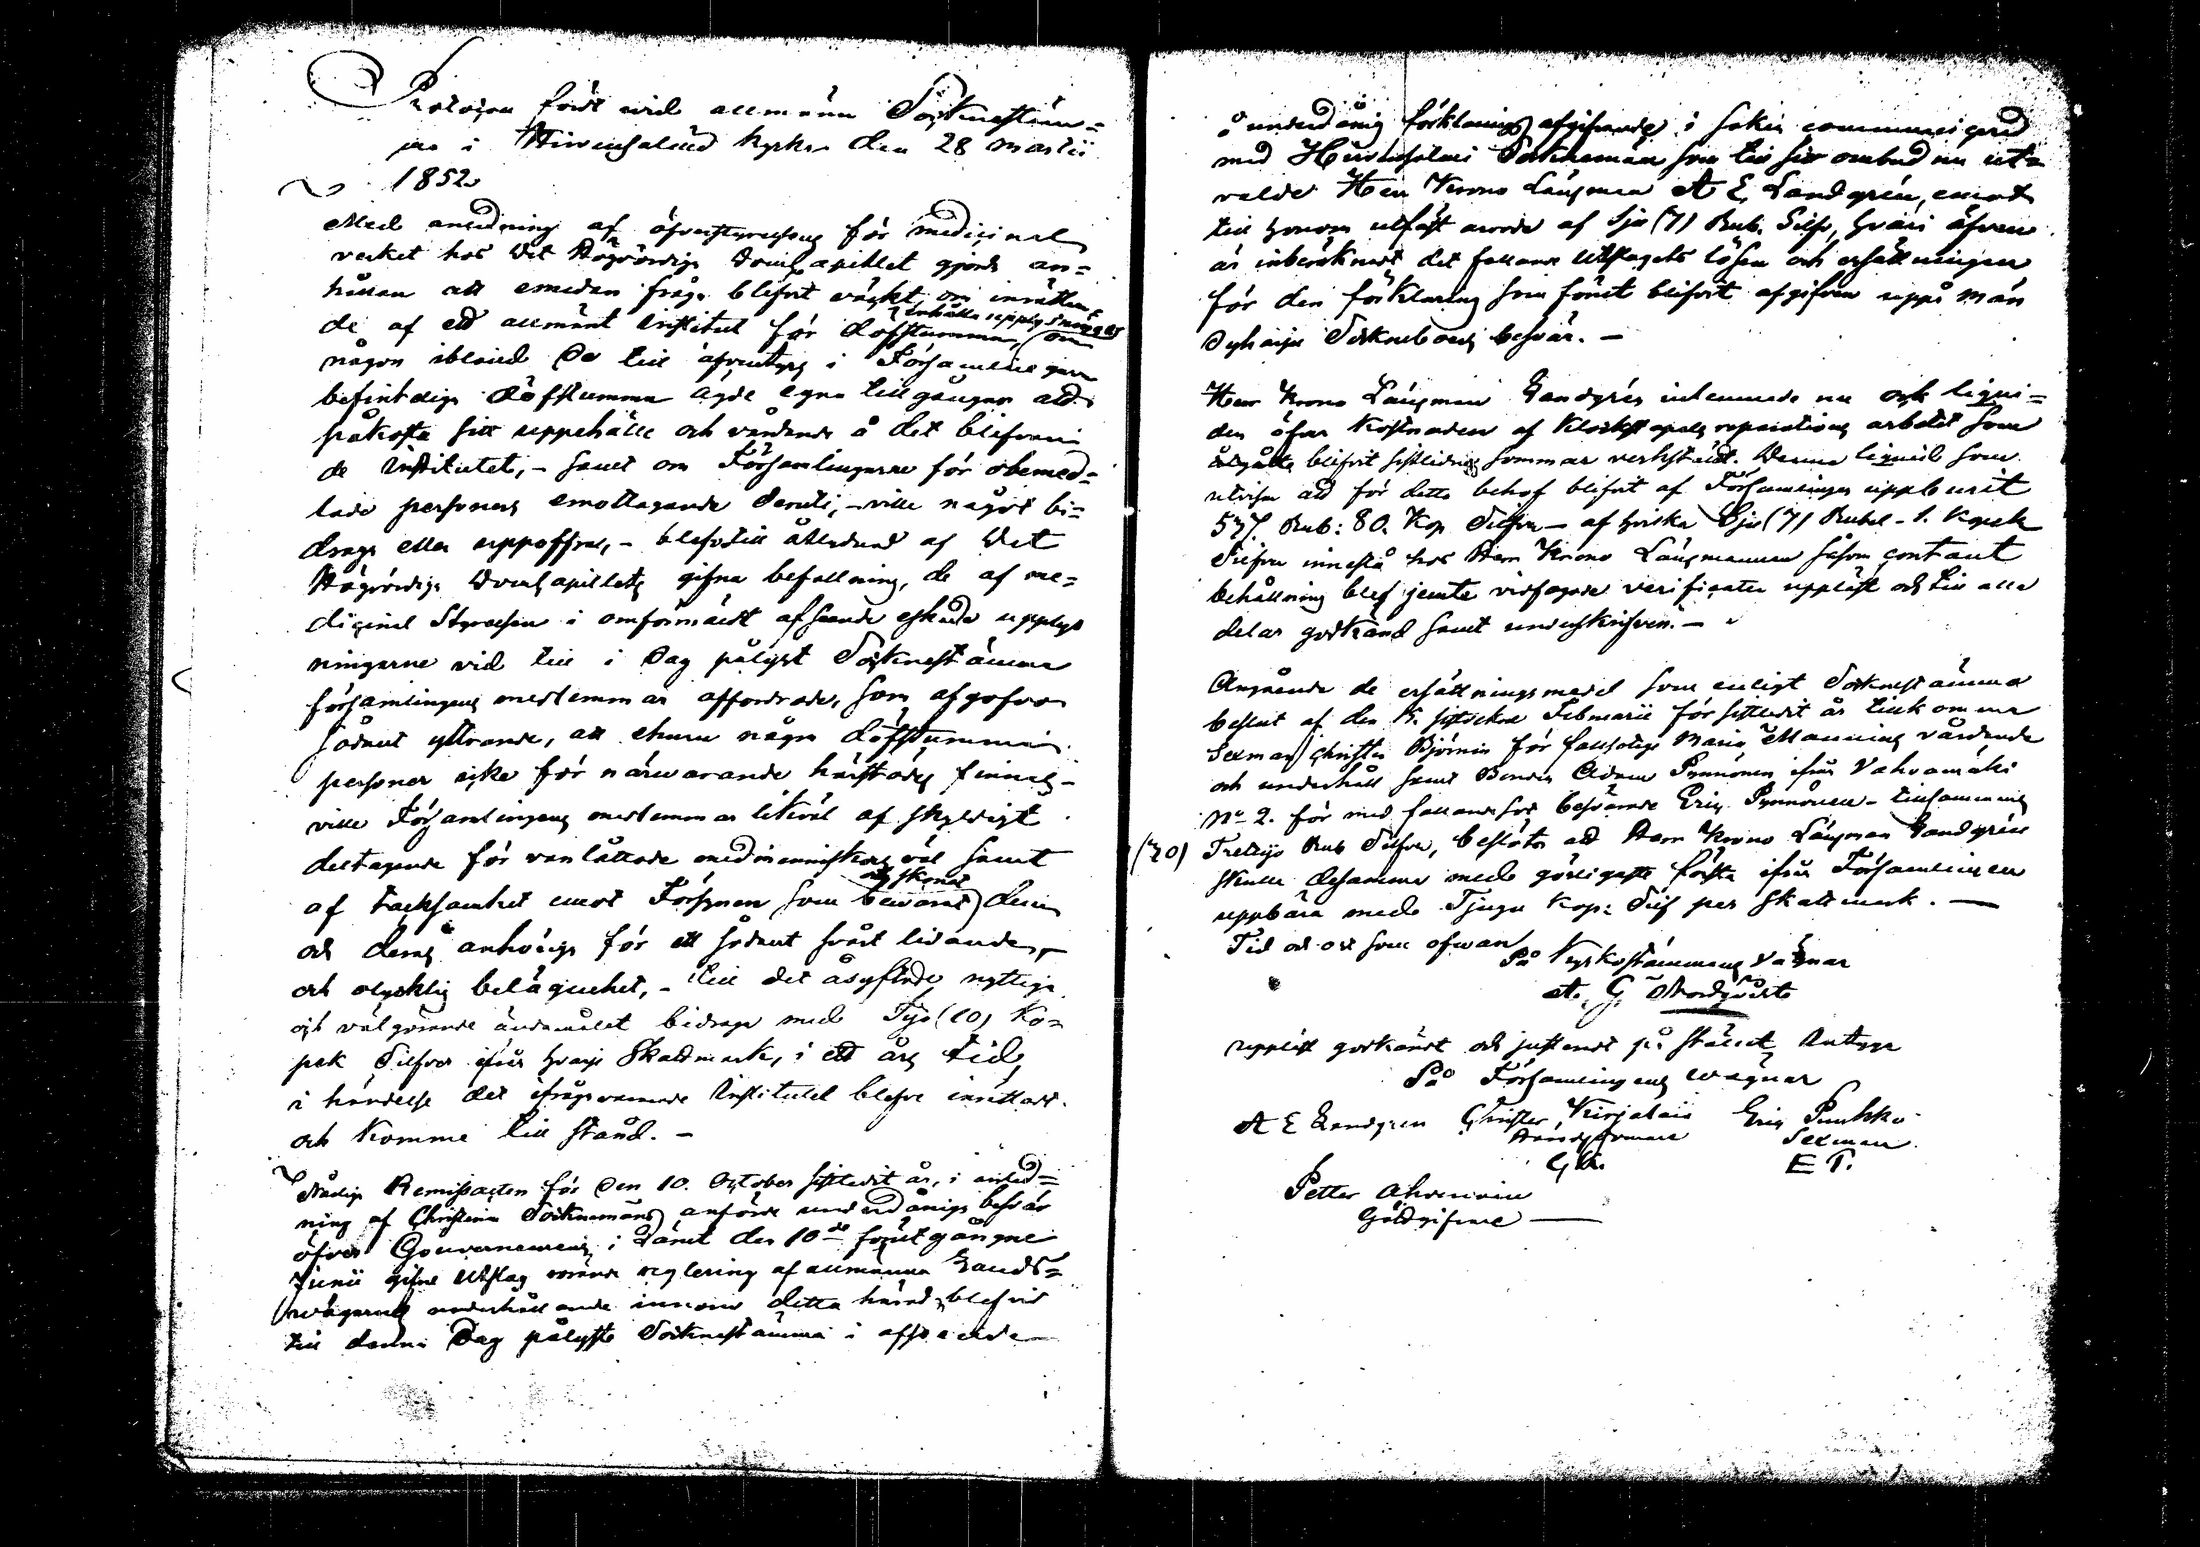 Protocoll fördt wid allmänn Socknestäm=
ma i Hirvensalmi Kyrka den 28 Martii
1852
Med anledning af öfverstyrelsens för medicinal
verket hos Det Högvördiga Domcapitlet gjorde an=
hållan att emedan fråga blifvit väckt om inrättan=
de af ett allmänt Institut för döfstumma, erhålla upplysningar om
någon ibland de till äfventyrs i Församlingarna
befintliga döfstumma ägde egna tillgångar att
påkosta sitt uppehälle och vårdande å det blifvan
de Institutet, – samt om Församlingarne för obemed=
lade personers emottagande deruti, – ville något bi=
draga eller uppoffra, – blefvo till åtlydnad af Det
Högvördiga Domcapitlets gifna befallning, de af me=
dicinal Styrelsen i omförmäldt afseende äskade upplys
ningarne vid till i Dag pålyst Socknestämma
församlingens medlemmar affordrade, som afgofvo
sådant yttrande, att ehuru några döfstumma
personer icke för närwarande härstädes finnas –
ville Församlingens medlemmar likväl af skyldigt
deltagande för vanlottade medmenniskors väl samt
af tacksamhet emot Försynen som bewarat och skonat dem
och deras anhöriga för ett sådant svårt lidande, –
och olycklig belägenhet, – till det åsyftade nyttiga
och välgörande ändamålet bidraga med Tijo (10) Ko=
pek Silfver ifrån hvarje Skattmark, i ett års tid,
i händelse det ifrågavarande Institutet blefve inrättadt
och komme till stånd. –
Nådiga Remissacten för den 10. October sistledit år, i anled=
ning af Christina Socknemäns anförde underdåniga besvär
öfver Gouverneurens i Länet den 10de förutgångne
Junii gifne Utslag rörande reglering af allmänna Lands=
wägarnes underhållande innom detta härad, blef vid
till denna Dag pålyste Socknestämma i afseende
å underdånig förklarings afgifvande i saken communicerad
med Hirvensalmi Socknemän som till sitt ombud nu ut=
valde Herr Krono Länsman A E Landgrén, emot
till honom utfäst arvode af Sju (7) Rub. Silfv, hvari äfven
är inberäknadt det fallande Utslagets lösen och ersättningen
för den förklaring som förut blifvit afgifven uppå Män
dyharju Sockneboers besvär. –
Herr Krono Länsman Landgrén inlemnade nu och liqui=
den öfver kostnaden af Klockstapels reparations arbetet som
blifvit sistlidne sommar verkstäldt. Denna liquid som
utvisar att för detta behof blifvit af Församlingen uppburit
57. Rub: 80. Kop Silfver – af hvilka Sju (7) Rubel – 1. Kopek
Silfver innestå hos Herr Krono Länsmannen såsom contant
behållning blef jemte vidfogade verificater uppläst och till alla
delar godkänd samt underskrifven. –
Angående de ersättningsmedel som enligt Socknestämma
beslut af den sistvikne Februarii för sistledit år tillkomma
Sexman Christer Björnin för fallsotige Maria Mannins vårdande
och underhåll samt Bonden Adam Pynnönen ifrån Vahvamäki
No 2. för med fallandesot besvärade Eric Pynnönen – tillsammans
(30) Trettijo Rub Silfver, beslöts att Herr Krono Länsman Landgrén
skulle desamma med görligaste första ifrån Församlingen
uppbära med Tjugu Kop: Silf per skattmark. –
Tid och ort som ofwan
På Kyrkostämmans vägnar
A. G. Nordqvist
uppläst godkändt och justeradt på stället, betyga
På Församlingens wägnar
A E Landgren Christer Kirjalain Eric Puukko
Häradsdomare Sexman
E P.
Petter Ahvenain
Gästgifvare